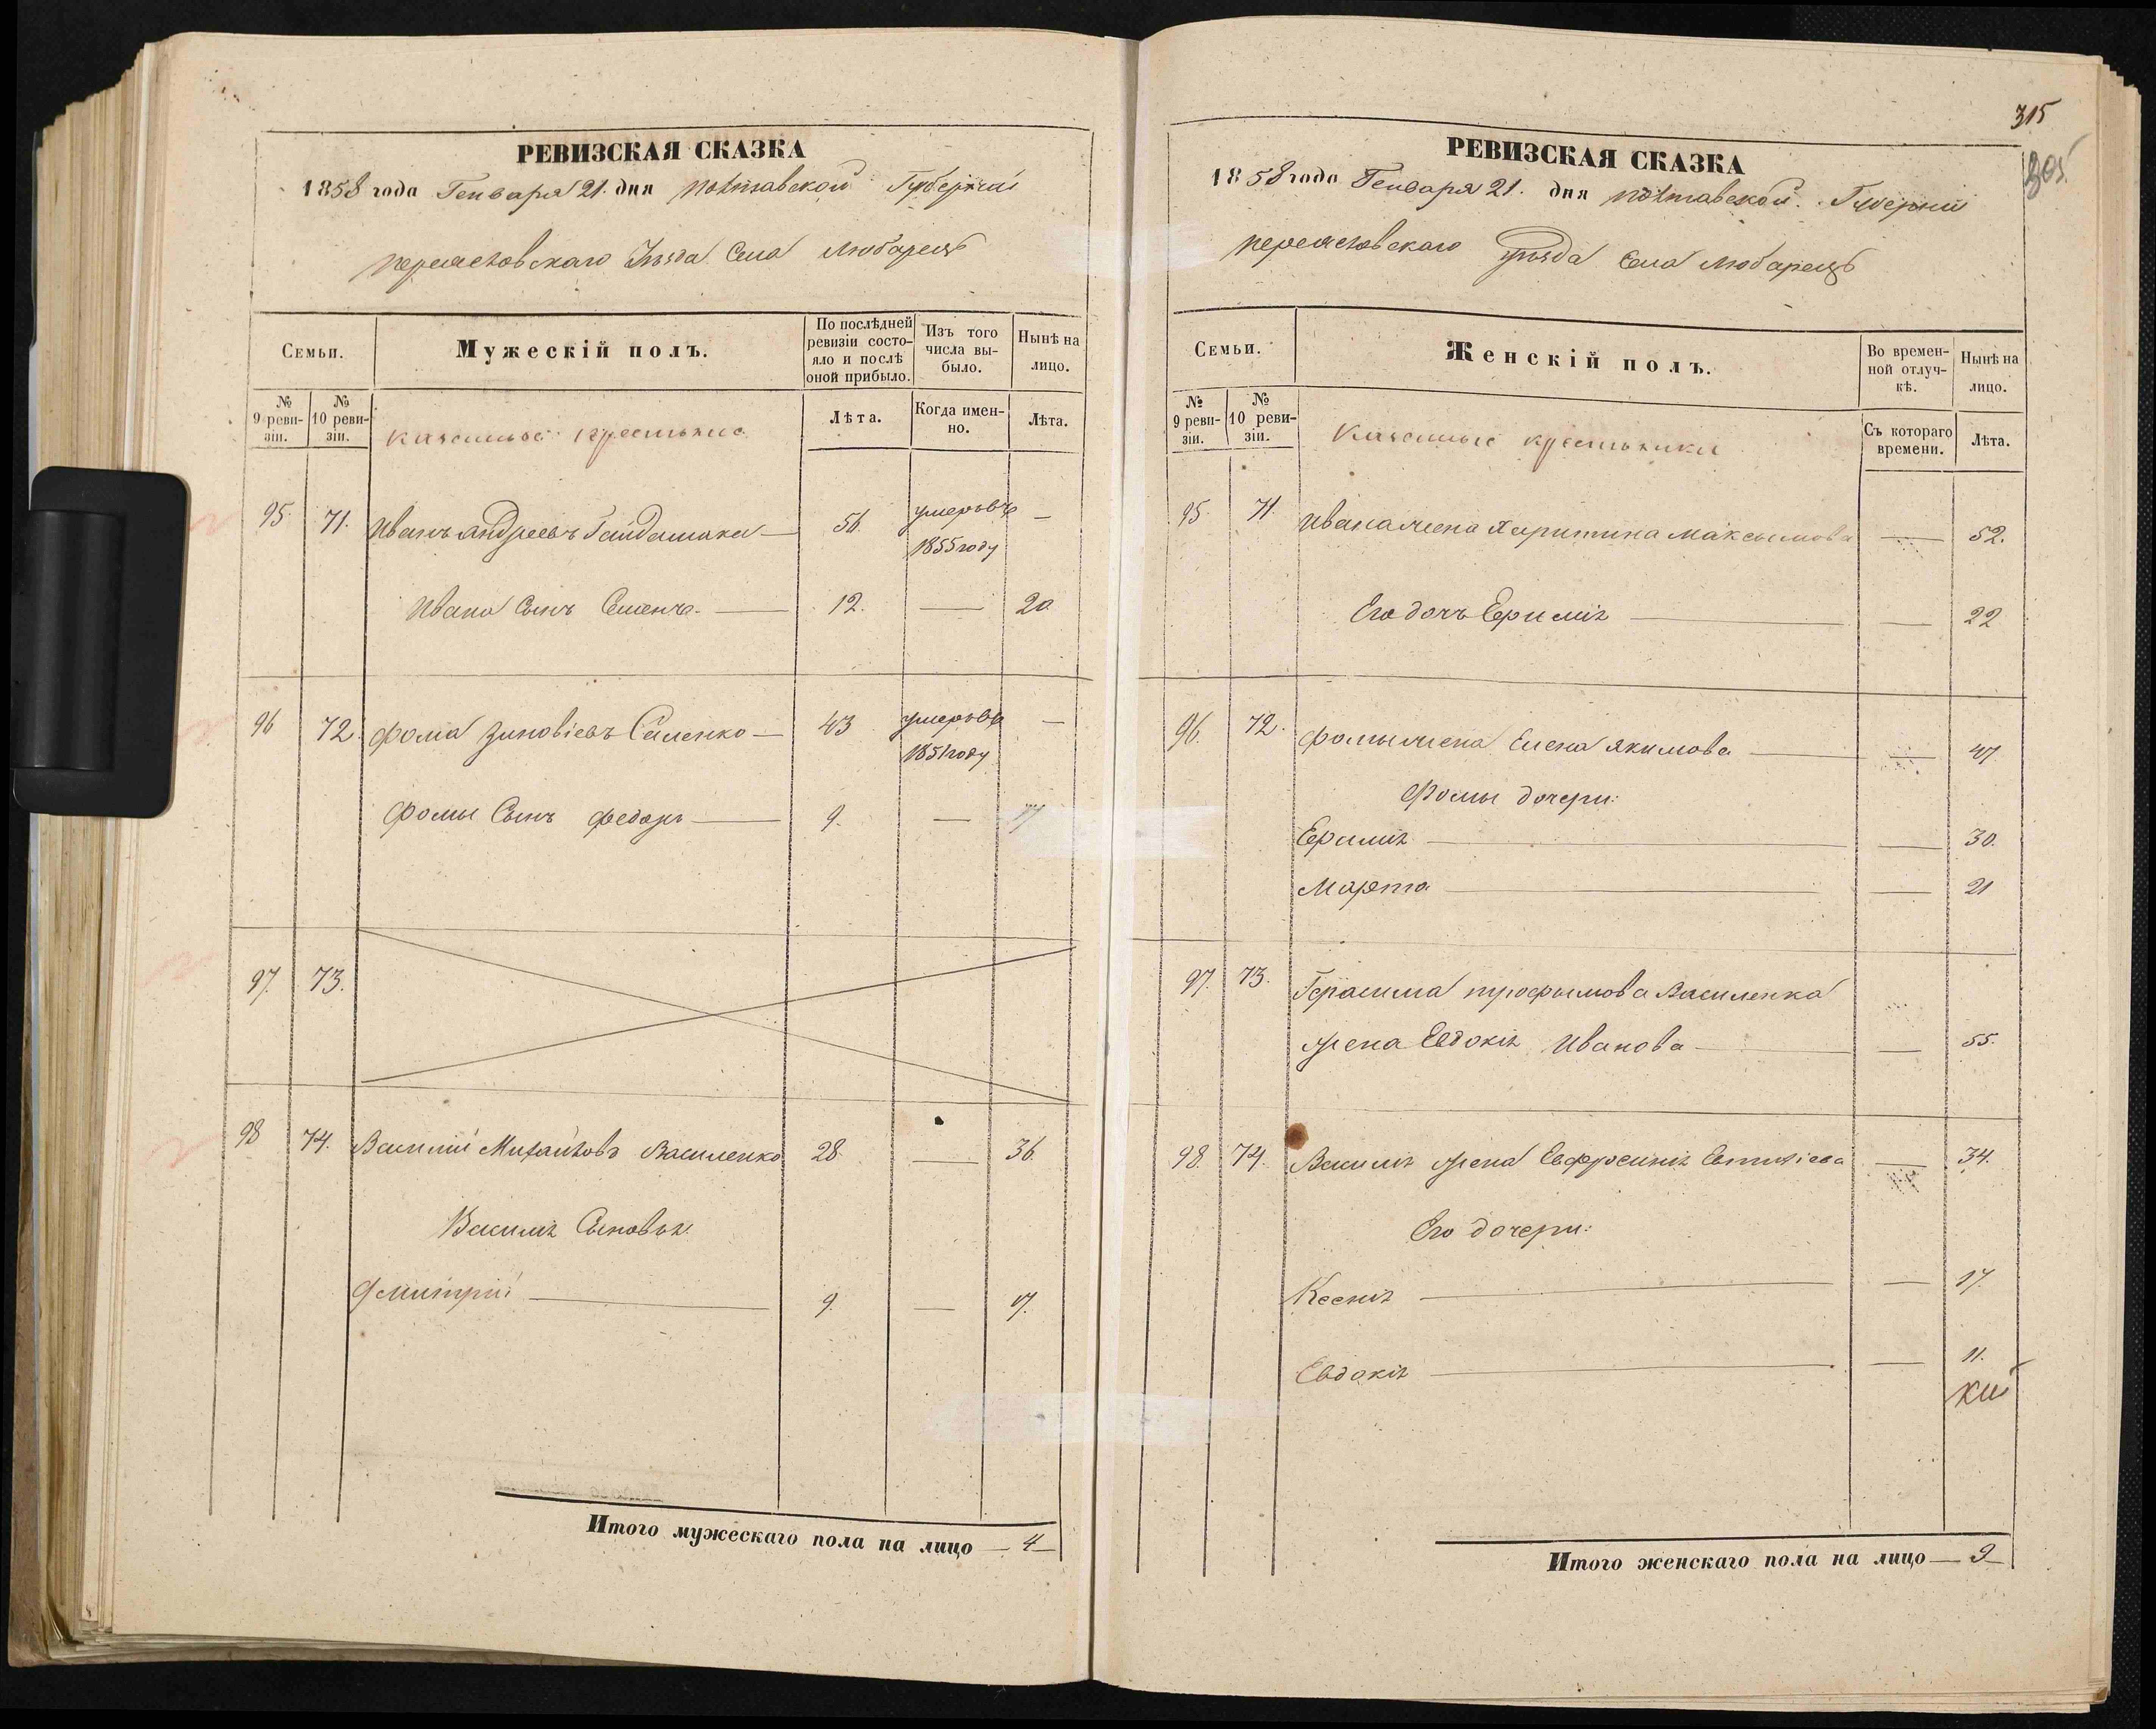 РЕВИЗСКАЯ СКАЗКА
1858 года Генваря 21. дня Полтавской Губерніи
переяславскаго Уѣзда Села Любарецъ
Семьи.
Мужескій полъ.
По послѣдней ревизіи состояло и послѣ оной прибыло.
Изъ того числа выбыло.
Нынѣ на лицо.
№ 9 ревизіи.
№ 10 ревизіи.
казенные крестьяне
Лѣта.
Когда именно.
Лѣта.
95. 71. Иванъ Андреевъ Гайдашика — 56 умеръ въ 1855 году —
Ивана Сынъ Семенъ — 12. — 20
96 72. Фома Зиновіевъ Саленко — 43 умеръ въ 1851 году —
Фомы Сынъ Федоръ — 9. — 17
97. 73.
98 74. Василий Михайловъ Василенко 28. — 36.
Василия Сыновья
Дмитрий — 9. — 17.
Итого мужескаго пола на лицо — 4 —
315
305.
РЕВИЗСКАЯ СКАЗКА
1858 года Генваря 21. дня Полтавской. Губерніи
переяславскаго Уѣзда Села Любарецъ
Семьи.
Женскій полъ.
Во временной отлучкѣ.
Нынѣ на лицо.
№ 9 ревизіи.
№ 10 ревизіи.
казенные крестьянки
Съ котораго времени.
Лѣта.
95. 71. Ивана жена Харитина Максимова — 52.
Его дочь Ефимия — — 22
96. 72. Фомы жена Елена Якимова — — 47
Фомы дочери:
Ефимия — — 30.
Марфа — — 21
97. 73. Герасима Трофимова Василенка
жена Евдокия Иванова — — 55.
98. 74. Василия жена Евфросиния Евтихіева — 34.
Его дочери:
Ксения — — 17.
Евдокия — — 11.
Итого женскаго пола на лицо — 9 —